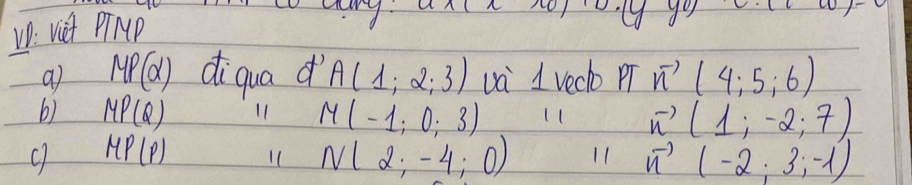 có dạng: a(x x0) + b.(y y0) c.(z z0) = 0
VD: Viết PTMP
a) MP(α) đi qua đ' A(1; 2; 3) và 1 vectơ PT n→ (4; 5; 6)
b) MP(Q) " M(-1; 0; 3) " n→ (1; -2; 7)
c) MP(P) " N(2; -4; 0) " n→ (-2; 3; -1)